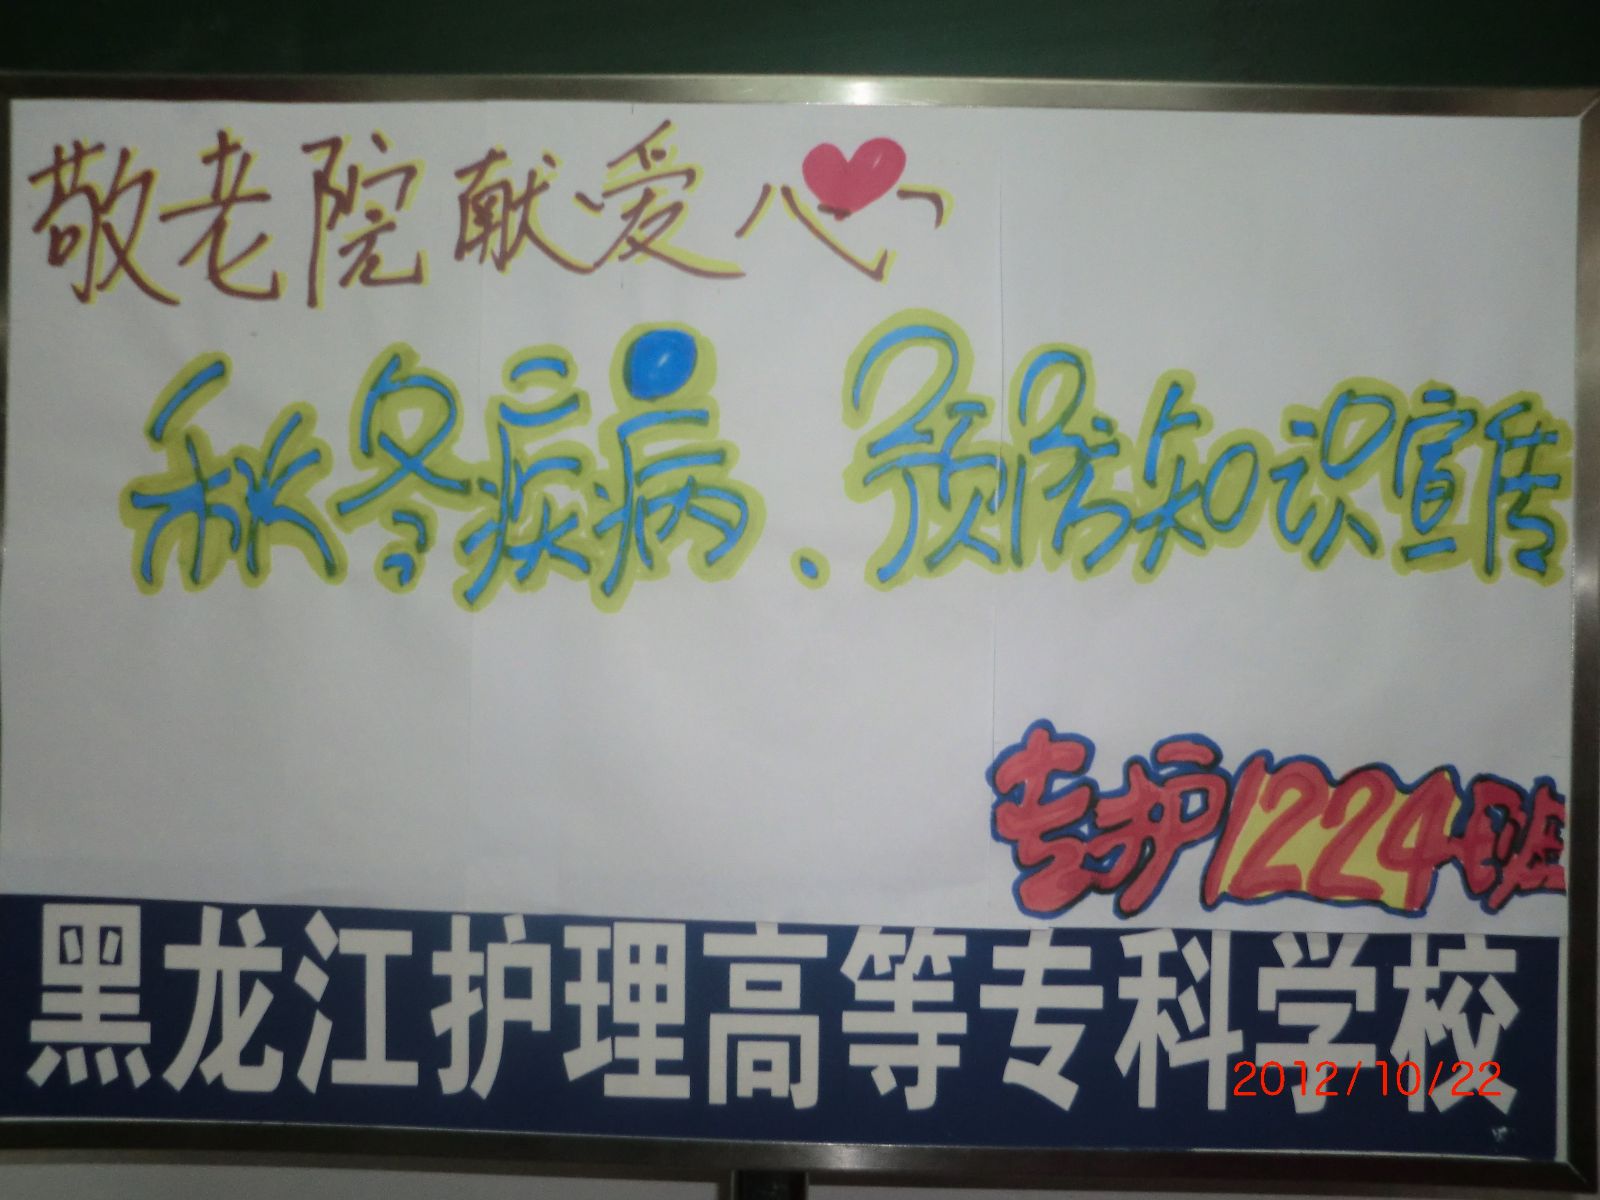 敬老院献爱心
秋冬疾病、预防知识宣传
专护1224班
黑龙江护理高等专科学校
2012/10/22